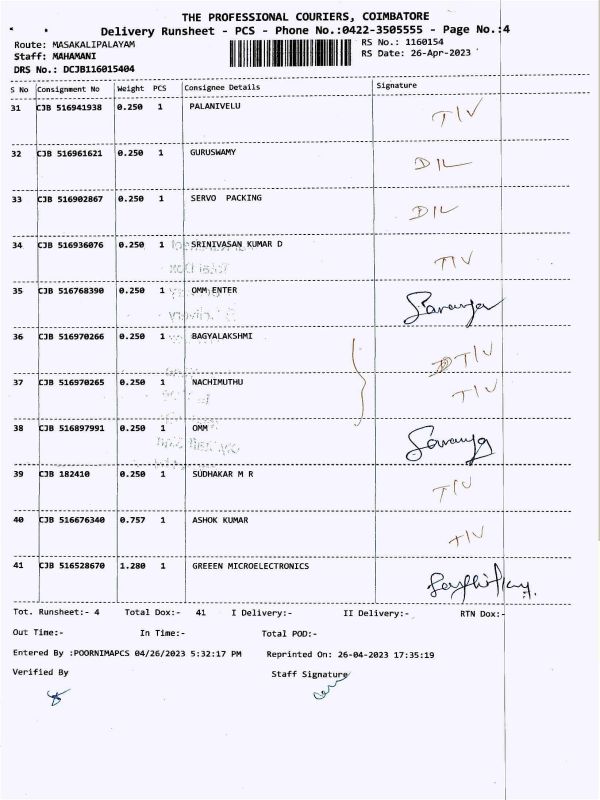 THE PROFESSIONAL COURIERS, COIMBATORE
Delivery Runsheet - PCS - Phone No.:0422-3505555 - Page No.:4
Route: MASAKALIPALAYAM
RS No.: 1160154
Staff: MAHAMANI
RS Date: 26-Apr-2023
DRS No.: DCJB116015404
S No Consignment No Weight PCS Consignee Details Signature
31 CJB 516941938 0.250 1 PALANIVELU T/V
32 CJB 516961621 0.250 1 GURUSWAMY D/L
33 CJB 516902867 0.250 1 SERVO PACKING D/L
34 CJB 516936076 0.250 1 SRINIVASAN KUMAR D T/V
35 CJB 516768390 0.250 1 OMM ENTER Saranya
36 CJB 516970266 0.250 1 BAGYALAKSHMI T/V
37 CJB 516970265 0.250 1 NACHIMUTHU T/V
38 CJB 516897991 0.250 1 OMM Saranya
39 CJB 182410 0.250 1 SUDHAKAR M R T/V
40 CJB 516676340 0.757 1 ASHOK KUMAR T/V
41 CJB 516528670 1.280 1 GREEEN MICROELECTRONICS
Tot. Runsheet:- 4 Total Dox:- 41 I Delivery:- II Delivery:- RTN Dox:-
Out Time:- In Time:- Total POD:-
Entered By :POORNIMAPCS 04/26/2023 5:32:17 PM Reprinted On: 26-04-2023 17:35:19
Verified By Staff Signature